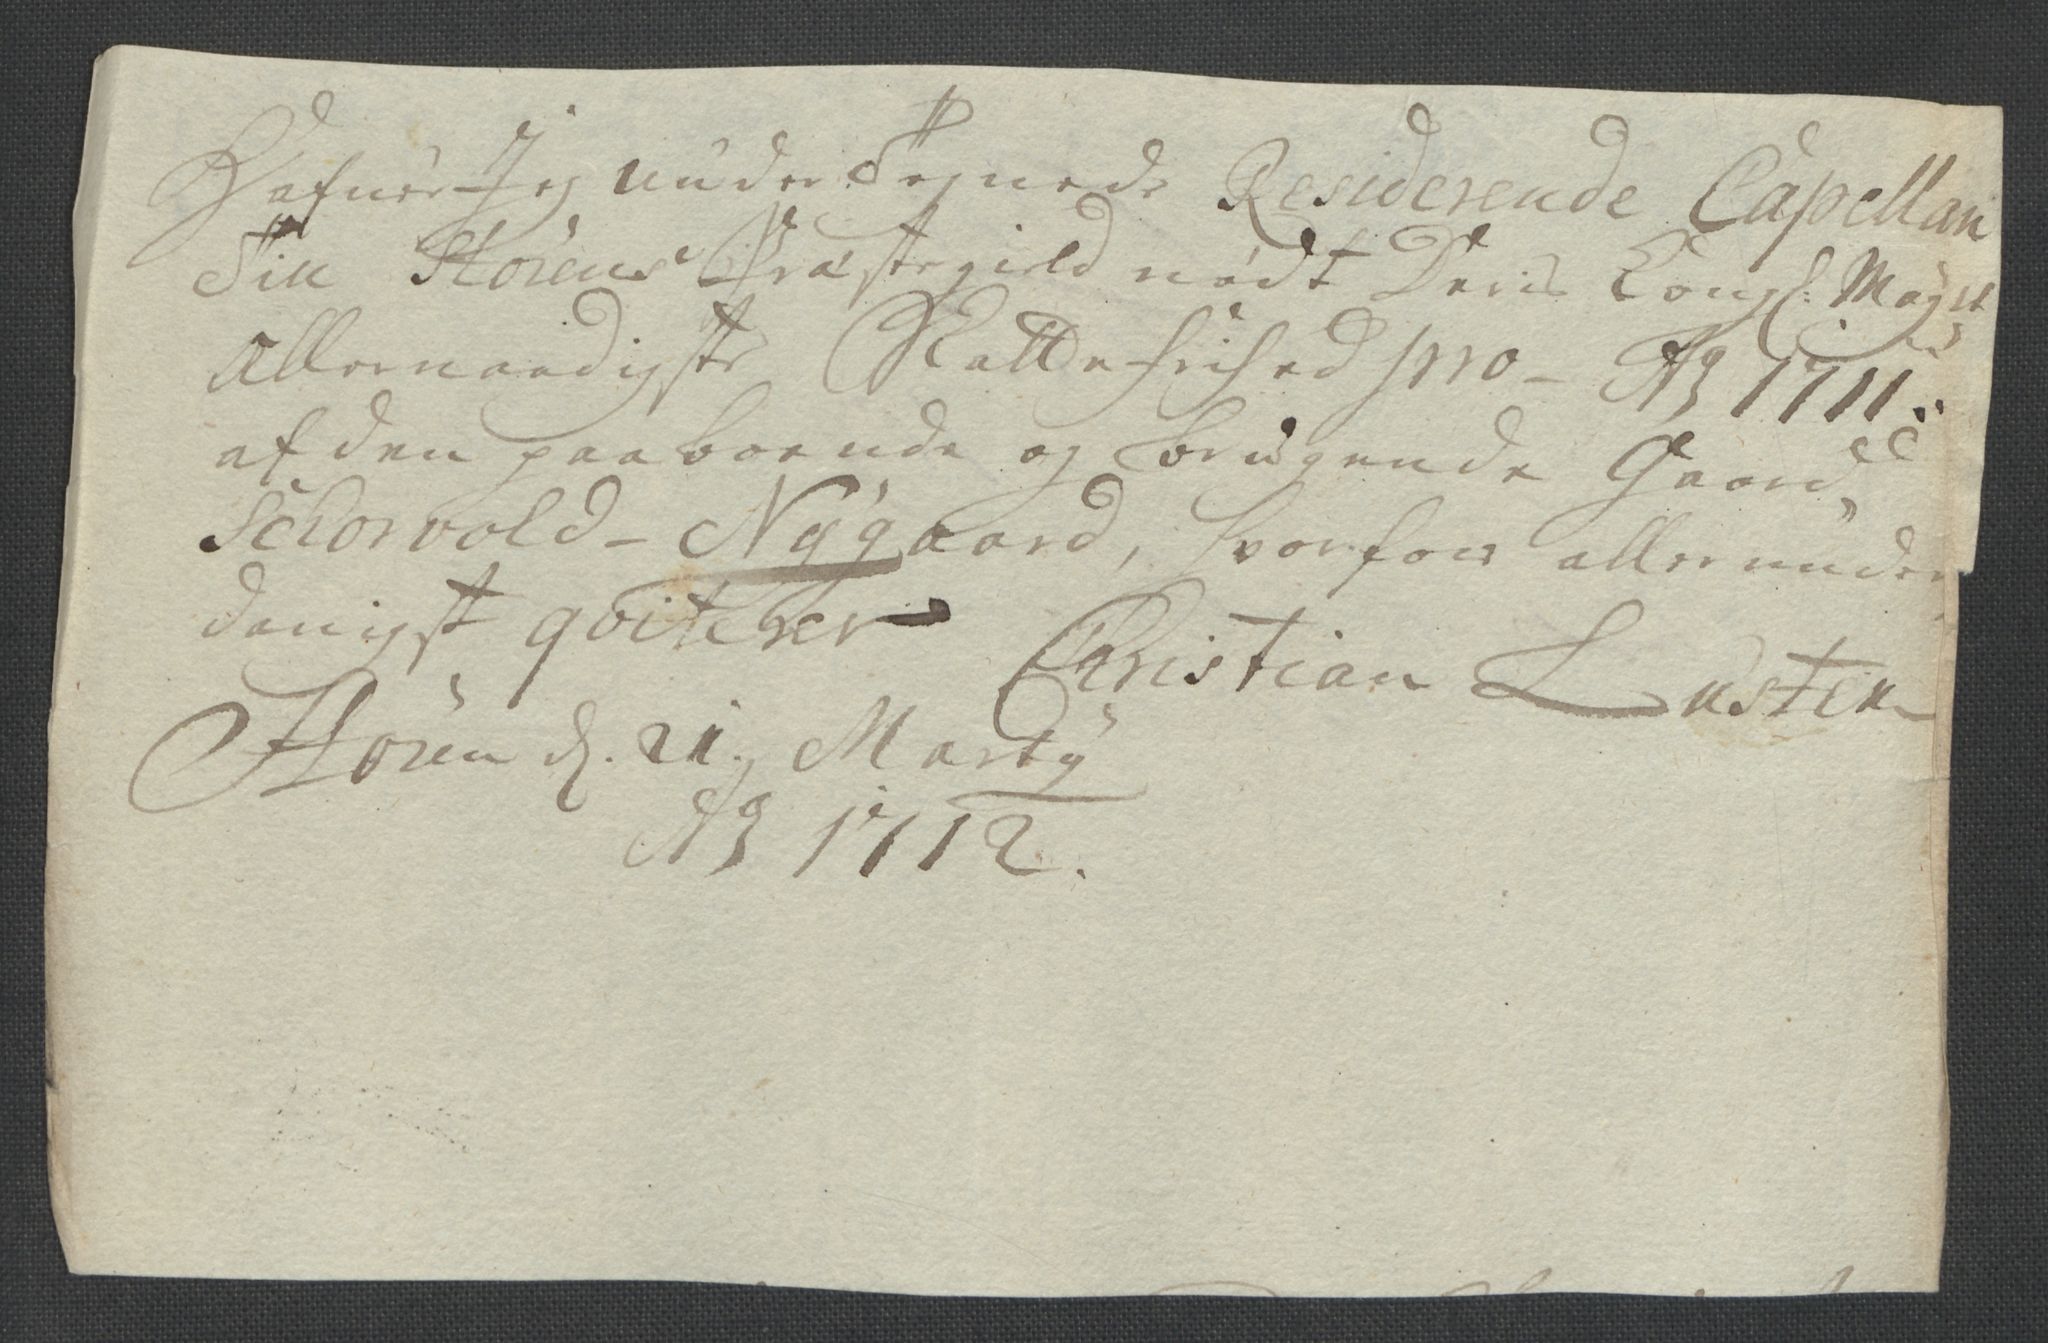 Hafuer Jeg under Tegnede Residerende Capellan
Till Störens Præstegield nødt Deris Kongl: Mayst
Allernaadigste Skatte frihed pro – Aõ 1711:
af den paaboende og brugende Gaard,
Schorvold – Nÿgaard, hvorfor allerunder
danigst qviterer Christian Lusten
Hören d. 21. Martÿ
Aõ 1712.